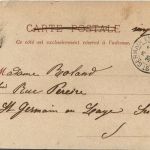 CARTE POSTALE
Ce côté est exclusivement réservé à l'adresse
Madame Boland
Rue Pereire
St Germain en Laye